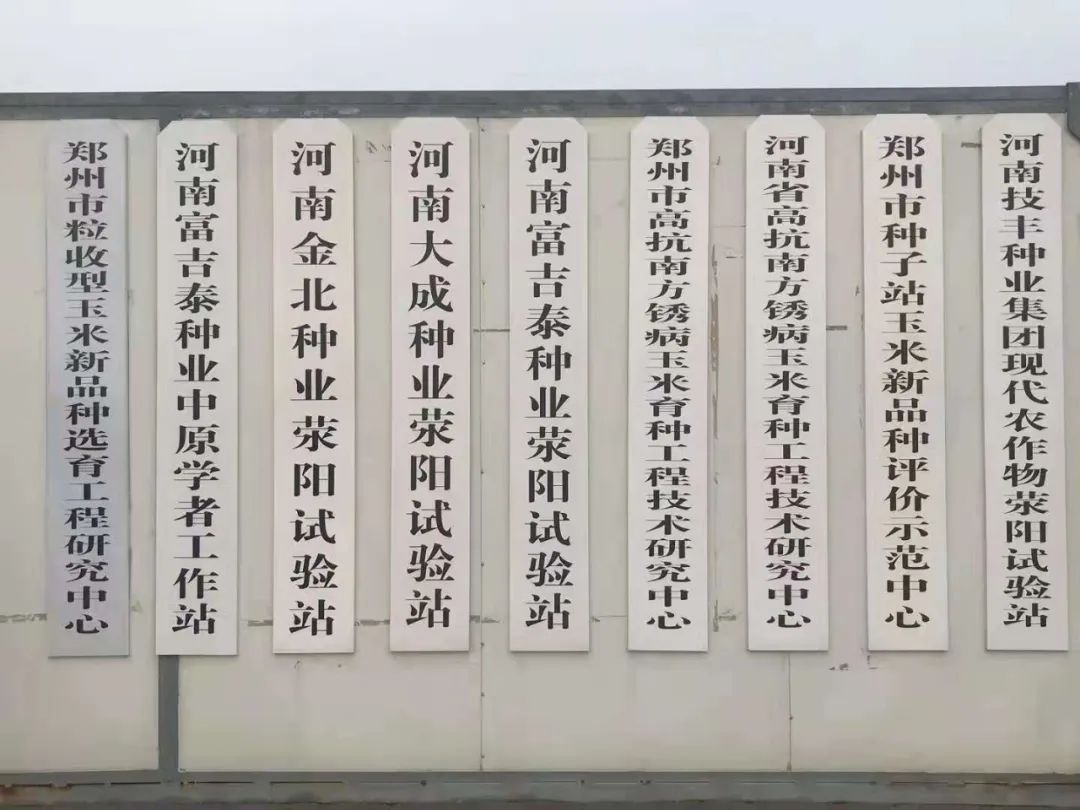 郑州市粒收型玉米新品种选育工程研究中心
河南富吉泰种业中原学者工作站
河南金北种业荥阳试验站
河南大成种业荥阳试验站
河南富吉泰种业荥阳试验站
郑州市高抗南方锈病玉米育种工程技术研究中心
河南省高抗南方锈病玉米育种工程技术研究中心
郑州市种子站玉米新品种评价示范中心
河南技丰种业集团现代农作物荥阳试验站